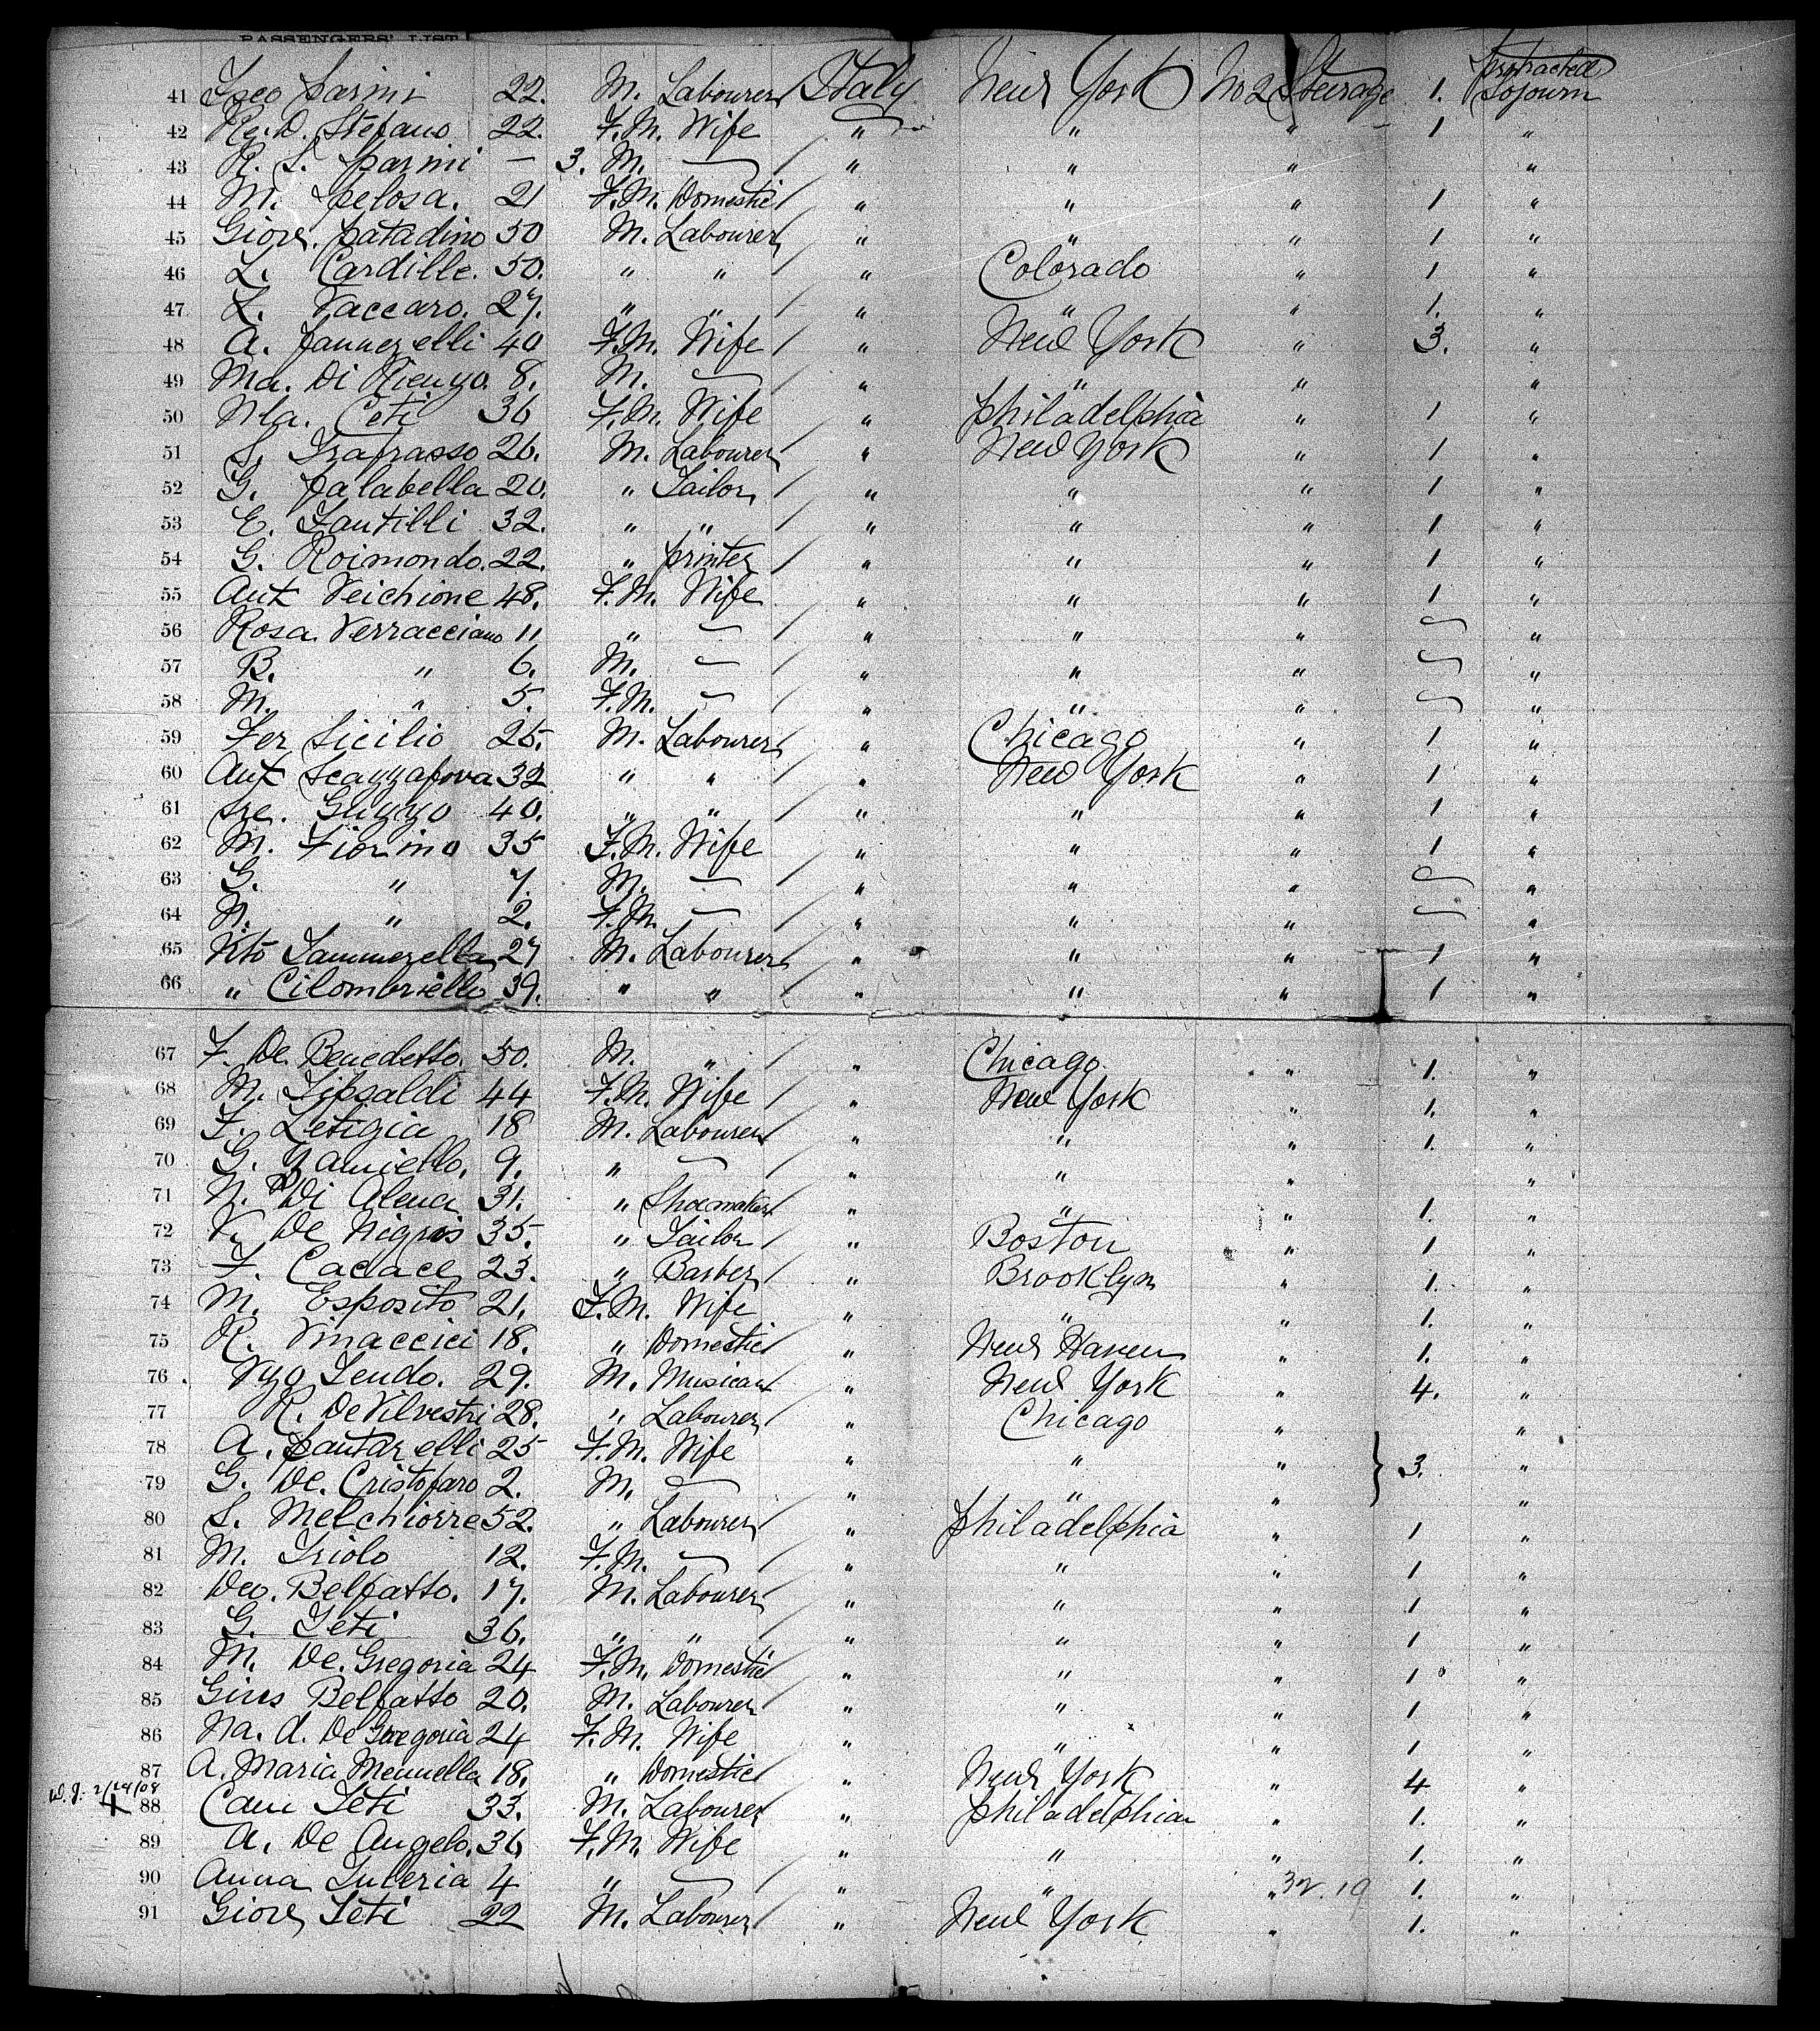 PASSENGERS' LIST
41 Parini 22. M. Labourer Italy New York No 2 Steerage 1. protracted Sojourn
42 D. Stefano 22. F.M. Wife " " " 1 "
43 R. S. Parini — 3. M. — " " " "
44 M. Pelosa. 21 F.M. Domestic " " " 1 "
45 Giov. Patadino 50 M. Labourer " " " 1 "
46 L. Cardille. 50. " " " Colorado " 1 "
47 L. Vaccaro. 27. " " " " " 1. "
48 A. 40 F.M. Wife " New York " 3. "
49 Ma. Di Rienzo. 8. M. — " " " "
50 Ma. Ceti 36 F.M. Wife " Philadelphia " 1 "
51 S. Trafrasso 26. M. Labourer " New York " 1 "
52 G. Palabella 20. " Tailor " " " 1 "
53 E. Zantilli 32. " " " " " 1 "
54 G. Roimondo. 22. " Printer " " " 1 "
55 Ant Veichione 48. F.M. Wife " " " 1 "
56 Rosa Verracciano 11 " — " " " — "
57 B. " 6. M. — " " " — "
58 M. " 5. F.M. — " " " — "
59 Fer Sicilio 25. M. Labourer " Chicago " 1 "
60 Ant Scazzafova 32 " " " New York " 1 "
61 Guzzo 40. " " " " " 1 "
62 M. Fiorino 35 F.M. Wife " " " 1 "
63 G. " 7. M. — " " " — "
64 N. " 2. F.M. — " " " — "
65 Vto Iammerella 27 M. Labourer " " " 1 "
66 " Cilombriello 39. " " " " " 1 "
67 F. De Benedetto. 50. M. " " Chicago " 1. "
68 M. Tibaldi 44 F.M. Wife " New York " 1. "
69 F. Letizia 18 M. Labourer " " " 1. "
70 G. Zaniello. 9. " — " " " "
71 N. Di Alena 31. " Shoemaker " " " 1. "
72 V. De Nigris 35. " Tailor " Boston " 1 "
73 F. Cacace 23. " Barber " Brooklyn " 1. "
74 M. Esposito 21. F.M. Wife " " " 1. "
75 R. Vinaccici 18. " Domestic " New Haven " 1. "
76 Vzo Tendo. 29. M. Musicant " New York " 4. "
77 R. De Vilvestri 28. " Labourer " Chicago " "
78 A. Pantarelli 25 F.M. Wife " " " 3. "
79 G. De. Cristofaro 2. M. — " " " "
80 S. Melchiorre 52. " Labourer " Philadelphia " 1 "
81 M. Triolo 12. F.M. — " " " 1 "
82 Deo. Belfatto. 17. M. Labourer " " " 1 "
83 G. Teti 36. " " " " " 1 "
84 M. De. Gregoria 24 F.M. Domestic " " " 1 "
85 Gius Belfatto 20. M. Labourer " " " 1 "
86 Na. d. De Gregoria 24 F.M. Wife " " " 1 "
87 A. Maria Mennella 18. " Domestic " New York " 4 "
W.J. 2/24/08
X 88 Cam Teti 33. M. Labourer " Philadelphia " 1. "
89 A. De Angelo. 36 F.M. Wife " " " 1. "
90 Anna Luberia 4 " — " " " 32.19 1. "
91 Giov Teti 22 M. Labourer " New York " 1. "